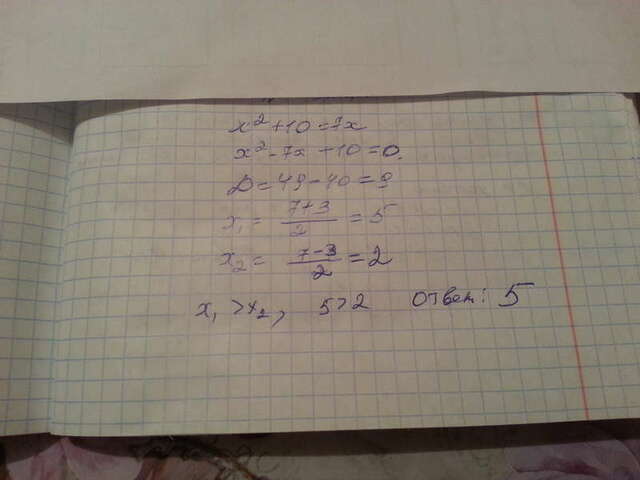 x²+10=7x
x²-7x+10=0
D=49-40=9
x₁=(7+3)/2=5
x₂=(7-3)/2=2
x₁>x₂, 5>2 Ответ: 5